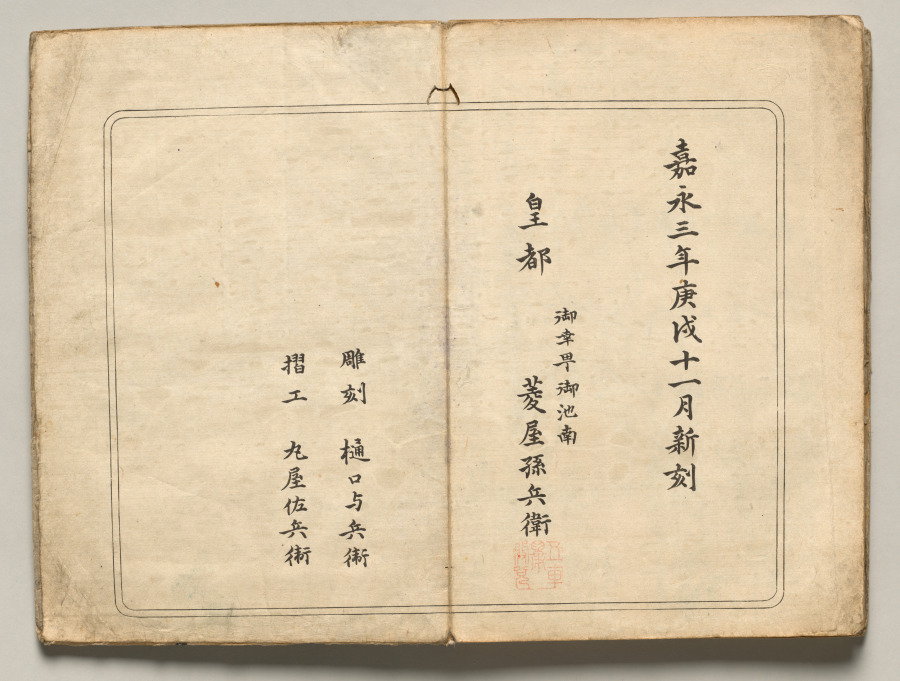 嘉永三年庚戌十一月新刻
皇都
御幸町御池南
菱屋孫兵衛
雕刻 樋口与兵衛
摺工 丸屋佐兵衛